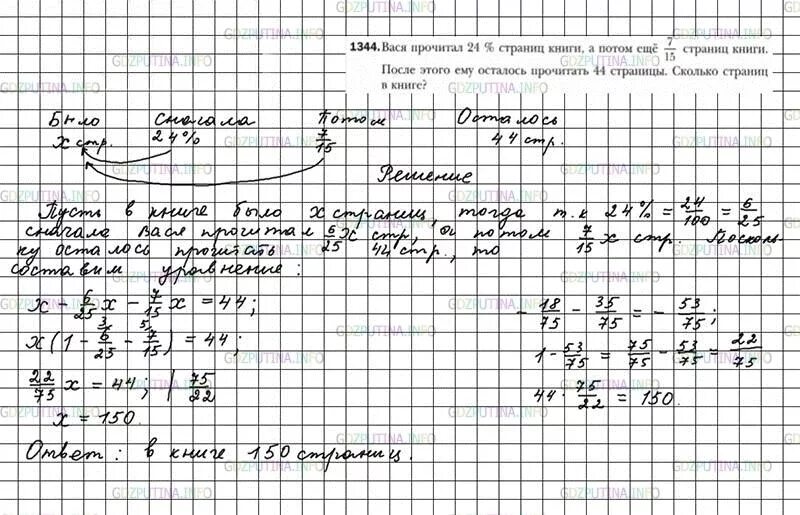 GDZPUTINA.INFO
1344. Вася прочитал 24 % страниц книги, а потом ещё 7/15 страниц книги.
После этого ему осталось прочитать 44 страницы. Сколько страниц
в книге?
Было сначала Потом Осталось
x стр. 24% 7/15 44 стр.
Решение
Пусть в книге было x страниц, тогда т.к 24% = 24/100 = 6/25
сначала Вася прочитал 6/25 x стр, а потом 7/15 x стр. Посколь-
ку осталось прочитать 44 стр., то
составим уравнение:
x - 6/25 x - 7/15 x = 44;
x(1 - 6/25 - 7/15) = 44;
22/75 x = 44; | 75/22
x = 150.
- 18/75 - 35/75 = - 53/75;
1 - 53/75 = 75/75 - 53/75 = 22/75
44 · 75/22 = 150.
Ответ: в книге 150 страниц.